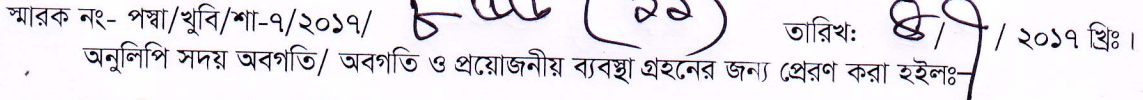 স্মারক নং- পম্বা/খুবি/শা-৭/২০১৭/ (২২) তারিখঃ / / ২০১৭ খ্রিঃ।
অনুলিপি সদয় অবগতি/ অবগতি ও প্রয়োজনীয় ব্যবস্থা গ্রহনের জন্য প্রেরণ করা হইলঃ-